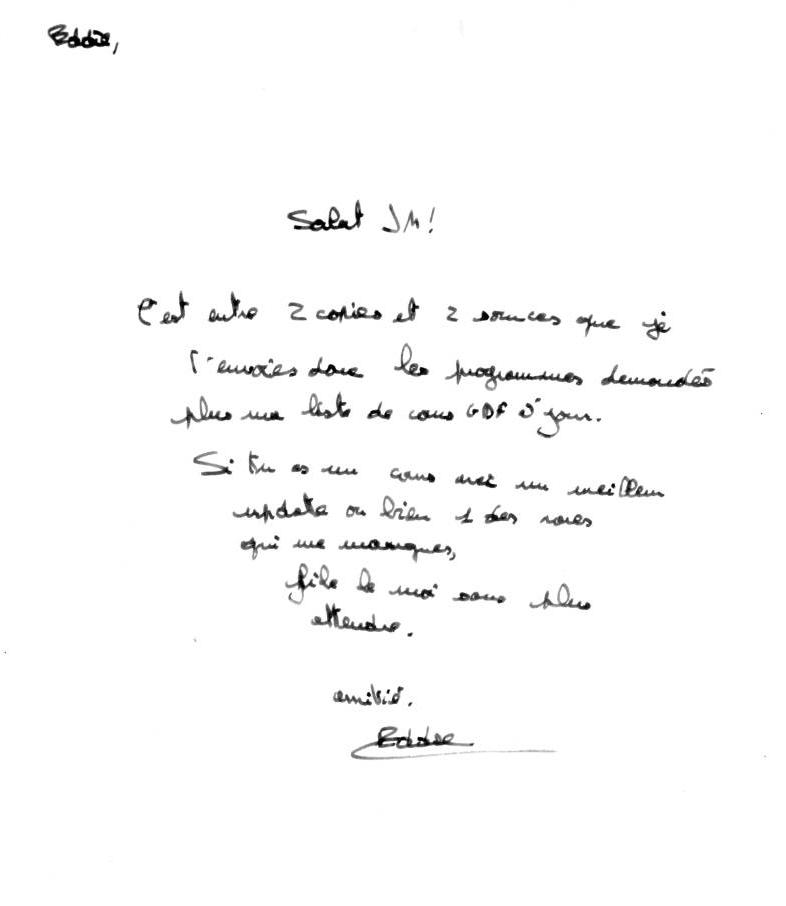 Eddie,
Salut JM!
C'est entre 2 copies et 2 sources que je
t'envoies donc les programmes demandés
plus ma liste de cours GDF à jour.
Si tu as un cours ou un meilleur
update ou bien 1 des rares
qui me manques,
file le moi sans plus
attendre.
amitié.
Eddie